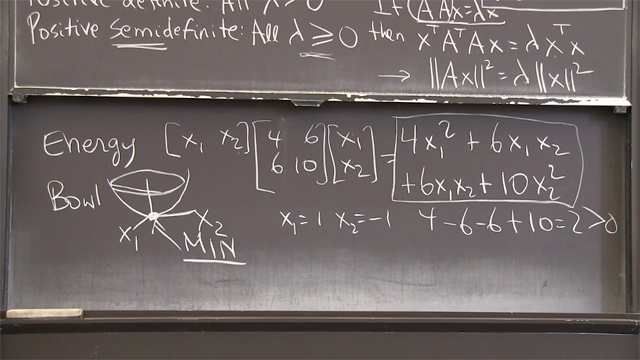 Positive definite: All λ > 0
Positive Semidefinite: All λ ≥ 0
If AᵀAx = λx
then xᵀAᵀAx = λxᵀx
→ ||Ax||² = λ||x||²
Energy [x₁ x₂] [4 6; 6 10] [x₁; x₂] = 4x₁² + 6x₁x₂
+6x₁x₂ + 10x₂²
Bowl
x₁ x₂
MIN
x₁=1 x₂=-1 4-6-6+10=2>0